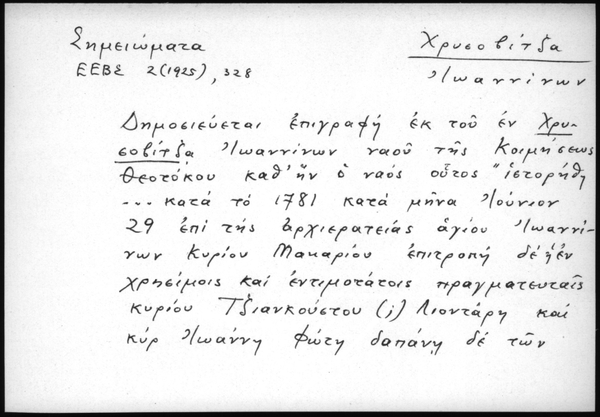 Σημειώματα
Χρυσοβίτσα
ΕΕΒΣ 2(1925), 328
Ἰωαννίνων
Δημοσιεύεται ἐπιγραφή ἐκ τοῦ ἐν Χρυ-
σοβίτσᾳ Ἰωαννίνων ναοῦ τῆς Κοιμήσεως
Θεοτόκου καθ' ἥν ὁ ναός οὗτος "ἱστορήθη
... κατά τό 1781 κατά μῆνα Ἰούνιον
29 ἐπί τῆς ἀρχιερατείας ἁγίου Ἰωαννί-
νων Κυρίου Μακαρίου ἐπιτροπῇ δέ ἡ ἐν
χρησίμοις καί ἐντιμοτάτοις πραγματευταῖς
κυρίου Τζιανκούστου (;) Λιοντάρη καί
κύρ Ἰωάννη Φώτη δαπάνῃ δέ τῶν